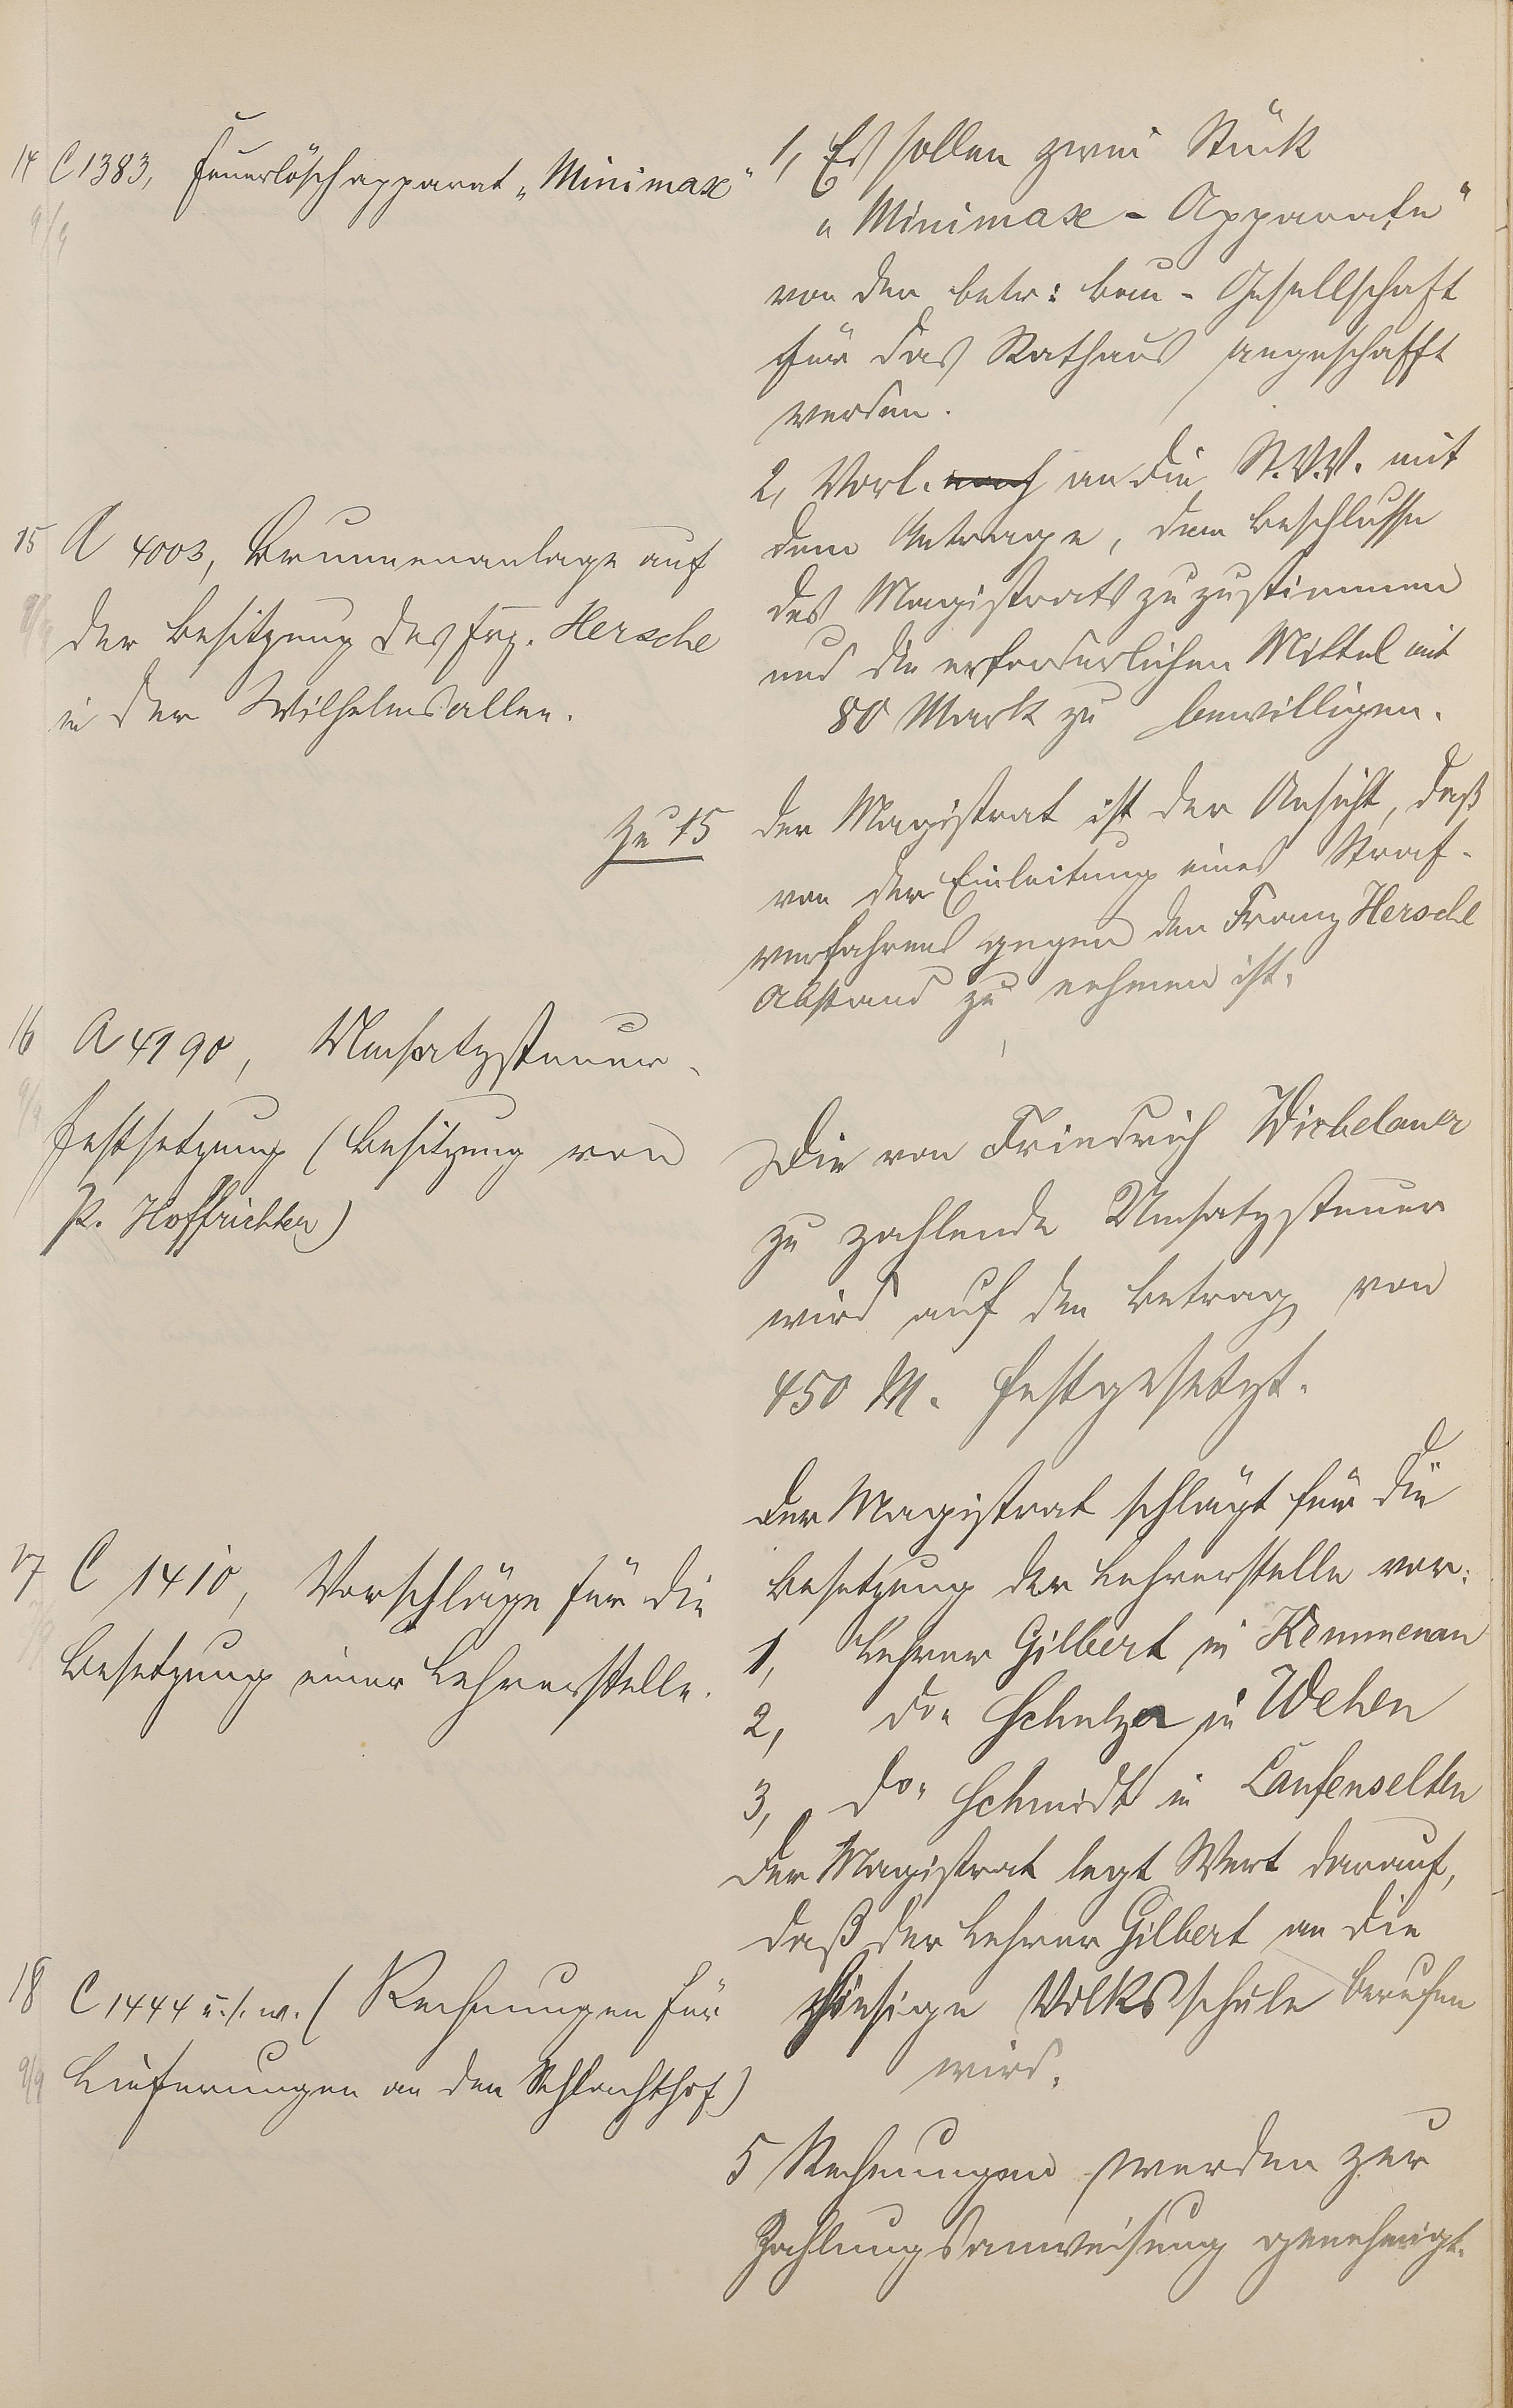 14 C 1383, Feuerlöschapparat „Minimax"
9/9
1, Es sollen zwei Stück
„Minimax-Apparate"
von der betr: Bau-Gesellschaft
für das Rathaus angeschafft
werden.
2, Vorl. nach an die St.V.V. mit
dem Antrage, dem Beschlusse
des Magistrats zuzustimmen
und die erforderlichen Mittel mit
80 Mark zu bewilligen.
15 A 4003, Brunnenanlage auf
der Besitzung des Frz. Hersche
in der Wilhelmsallee.
zu 15
der Magistrat ist der Ansicht, daß
von der Einleitung eines Straf-
verfahrens gegen den Franz Hersche
Abstand zu nehmen ist.
16 A 4990, Umsatzsteuer-
festsetzung (Besitzung von
P. Hoffrichter)
9/9
Die von Friedrich Wirbelauer
zu zahlende Umsatzsteuer
wird auf den Betrag von
450 M. festgesetzt.
17 C 1410, Vorschläge für die
Besetzung einer Lehrerstelle.
Der Magistrat schlägt für die
Besetzung der Lehrerstelle vor:
1, Lehrer Gilbert in Kemmenau
2, do. Schulze in Wehen
3, do. Schmidt in Laufenselden
Der Magistrat legt Wert darauf,
daß der Lehrer Gilbert an die
hiesige Volksschule berufen
wird.
18 C 1444 u.s.w. (Rechnungen für
Lieferungen an den Schlachthof)
9/9
5 Rechnungen werden zur
Zahlungsanweisung genehmigt.